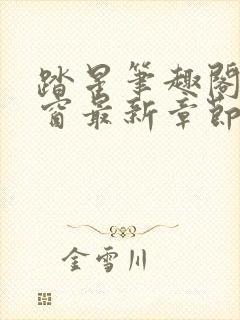 踏星笔趣阁
窗最新章节
金雪川